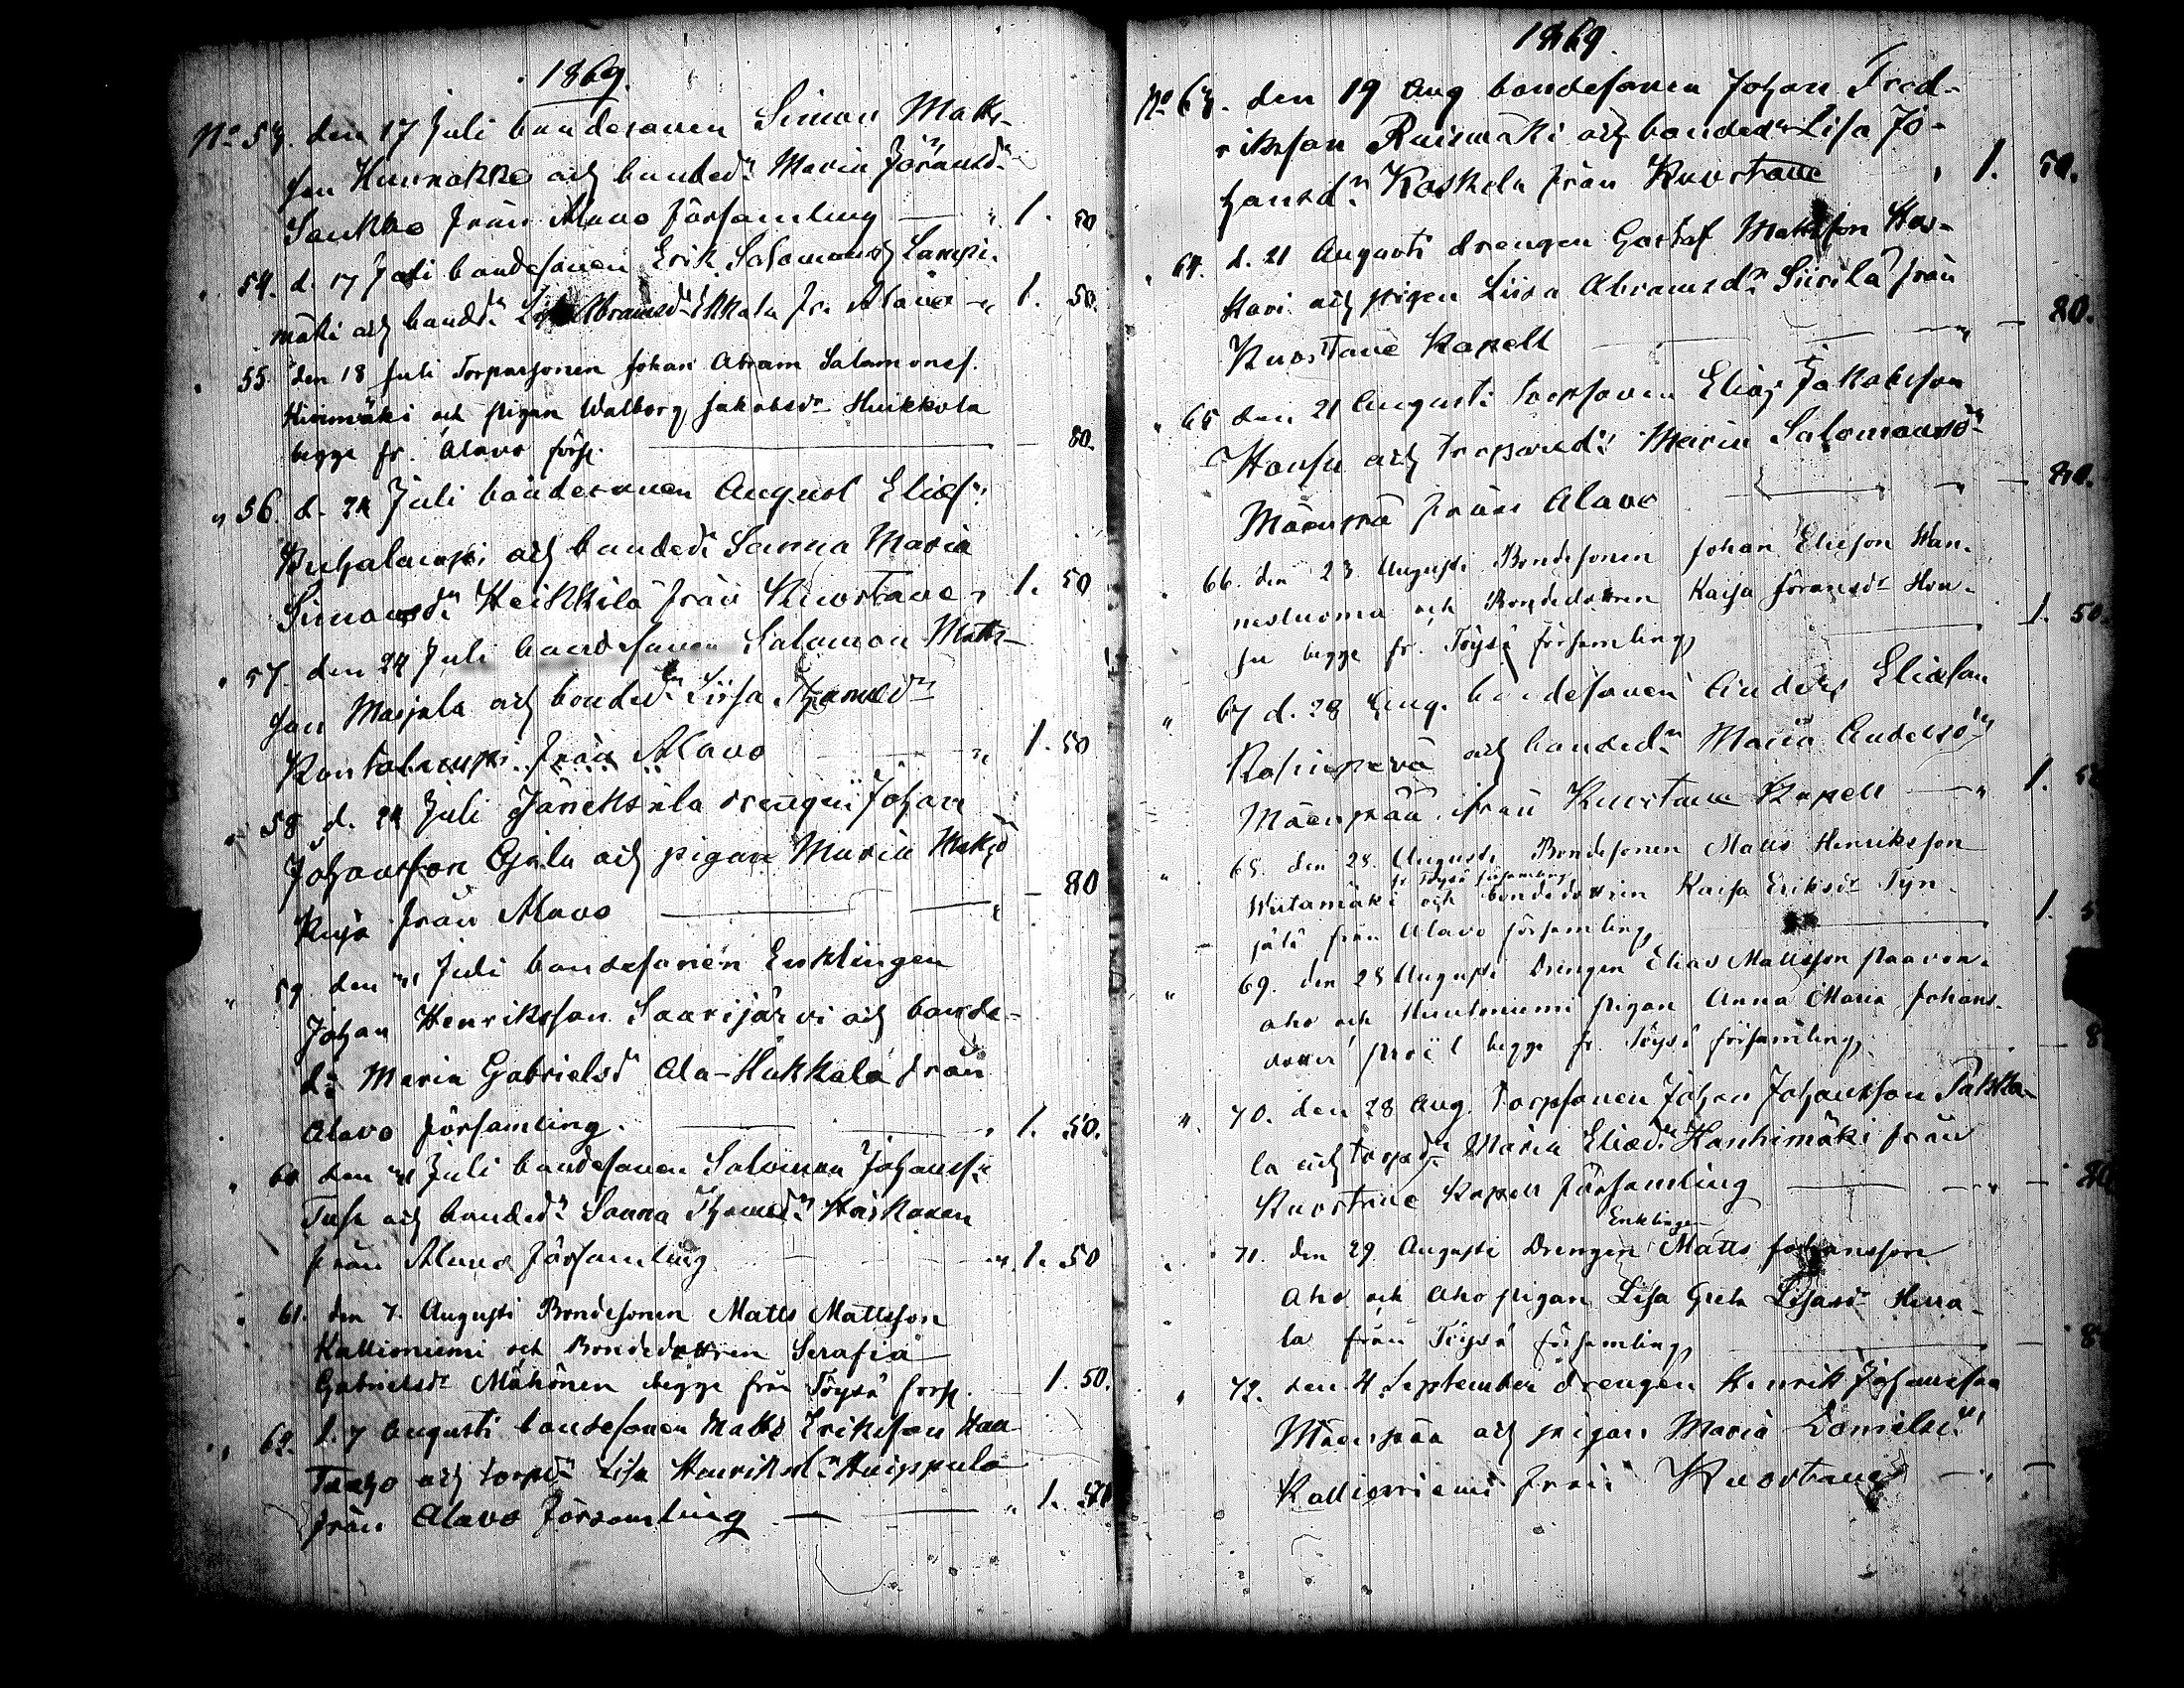 1869.
No 53. den 17 Juli bondesonen Simon Matts-
son Hunnakko och bonded:n Maria Jöransd:r
Saukko från Alavo församling — " 1. 50
" 54. d. 17 Juli bondesonen Erik Salomonss Lampi-
mäki och bonded:n Abramsd:r fr. Alavo — " 1. 50.
" 55. den 18 Juli Torparsonen Johan Abram Salamonss.
Kivimäki och pigan Walborg Jakobsd:r Huikkola
begge fr. Alavo förs. — 80.
" 56. d. 24 Juli bondesonen August Eliass:n
Ruhalampi och bonded:n Sanna Maria
Simonsd:r Heikkilä från Kuortane " 1. 50
" 57. den 24 Juli bondesonen Salomon Matts-
son Marjala och bonded:n Lisa Thomasd:r
från Alavo — " 1. 50
" 58. d. 24 Juli drengen Johan
Johansson Ojala och pigan Maria Matsd:r
Kuja från Alavo — " — 80
" 59. den " Juli bondesonen Enklingen
Johan Henriksson Saarijärvi och bonde-
d:n Maria Gabrielsd:r Ala-Hukkala från
Alavo församling. — " 1. 50.
" 60. den Juli bondesonen Salomon Johanss:n
och bonded:n Sanna Thomasd:r
från Alavo församling — " 1. 50
" 61. den 7. Augusti Bondesonen Matts Mattsson
Kallioniemi och Bondedottren Serafia
Gabrielsd:r Mähönen begge från Töysä förs. — 1. 50.
" 62. d. 7 Augusti bondesonen Matts Eriksson Han
och torpd:n Lisa Henriksd:r Huippula
från Alavo Församling — " 1. 50
1869.
No 63. den 19 Aug bondesonen Johan Fred-
riksson Ruismäki och bonded:n Lisa Jo-
hansd:r Koskela från Kuortane " 1. 50.
" 64. d. 21 Augusti drengen Gustaf Mattsson Has-
kari och pigen Liisa Abramsd:r Siirilä från
Kuortane Kapell — " — 80.
" 65 den 21 Augusti torpsonen Elias Jakobsson
och torpared:n Maria Salomonsd:r
Mäenpää från Alavo — " — 80.
" 66. den 23 Augusti Bondesonen Johan Eliesson Han-
nesluoma och Bondedottren Kaisa Jöransd:r Hon-
begge fr. Töysä församling — 1. 50.
" 67 d. 28 Aug. bondesonen Anders Eliasson
och bonded:n Maria Andersd:r
Mäenpää från Kuortane Kapell — " 1. 50
" 68. den 28. Augusti Bondesonen Matts Henriksson
fr Töysä församling
Wiitamäki och bondedottren Kaisa Eriksd:r Tyn-
jälä från Alavo församling — 1. 5
" 69. den 28 Augusti Drengen Elias Mattsson Paavon-
aho och Huutoniemi pigan Anna Maria Johans-
dotter begge fr. Töysä församling — 8
" 70. den 28 Aug. Torpsonen Johan Johansson Pakka-
la och torpd:n Maria Eliasd:r Hanhimäki från
Kuortane Kapell Församling — " — 80
Enklingen
" 71. den 29 Augusti Drengen Matts Johansson
Aho och Aho pigan Lisa Greta Lisasd:r Herra-
la från Töysä församling — 8
" 72. den 4 September drengen Henrik Johansson
Mäenpää och pigan Maria Danielsd:r
Kallioniemi från Kuortane — " —